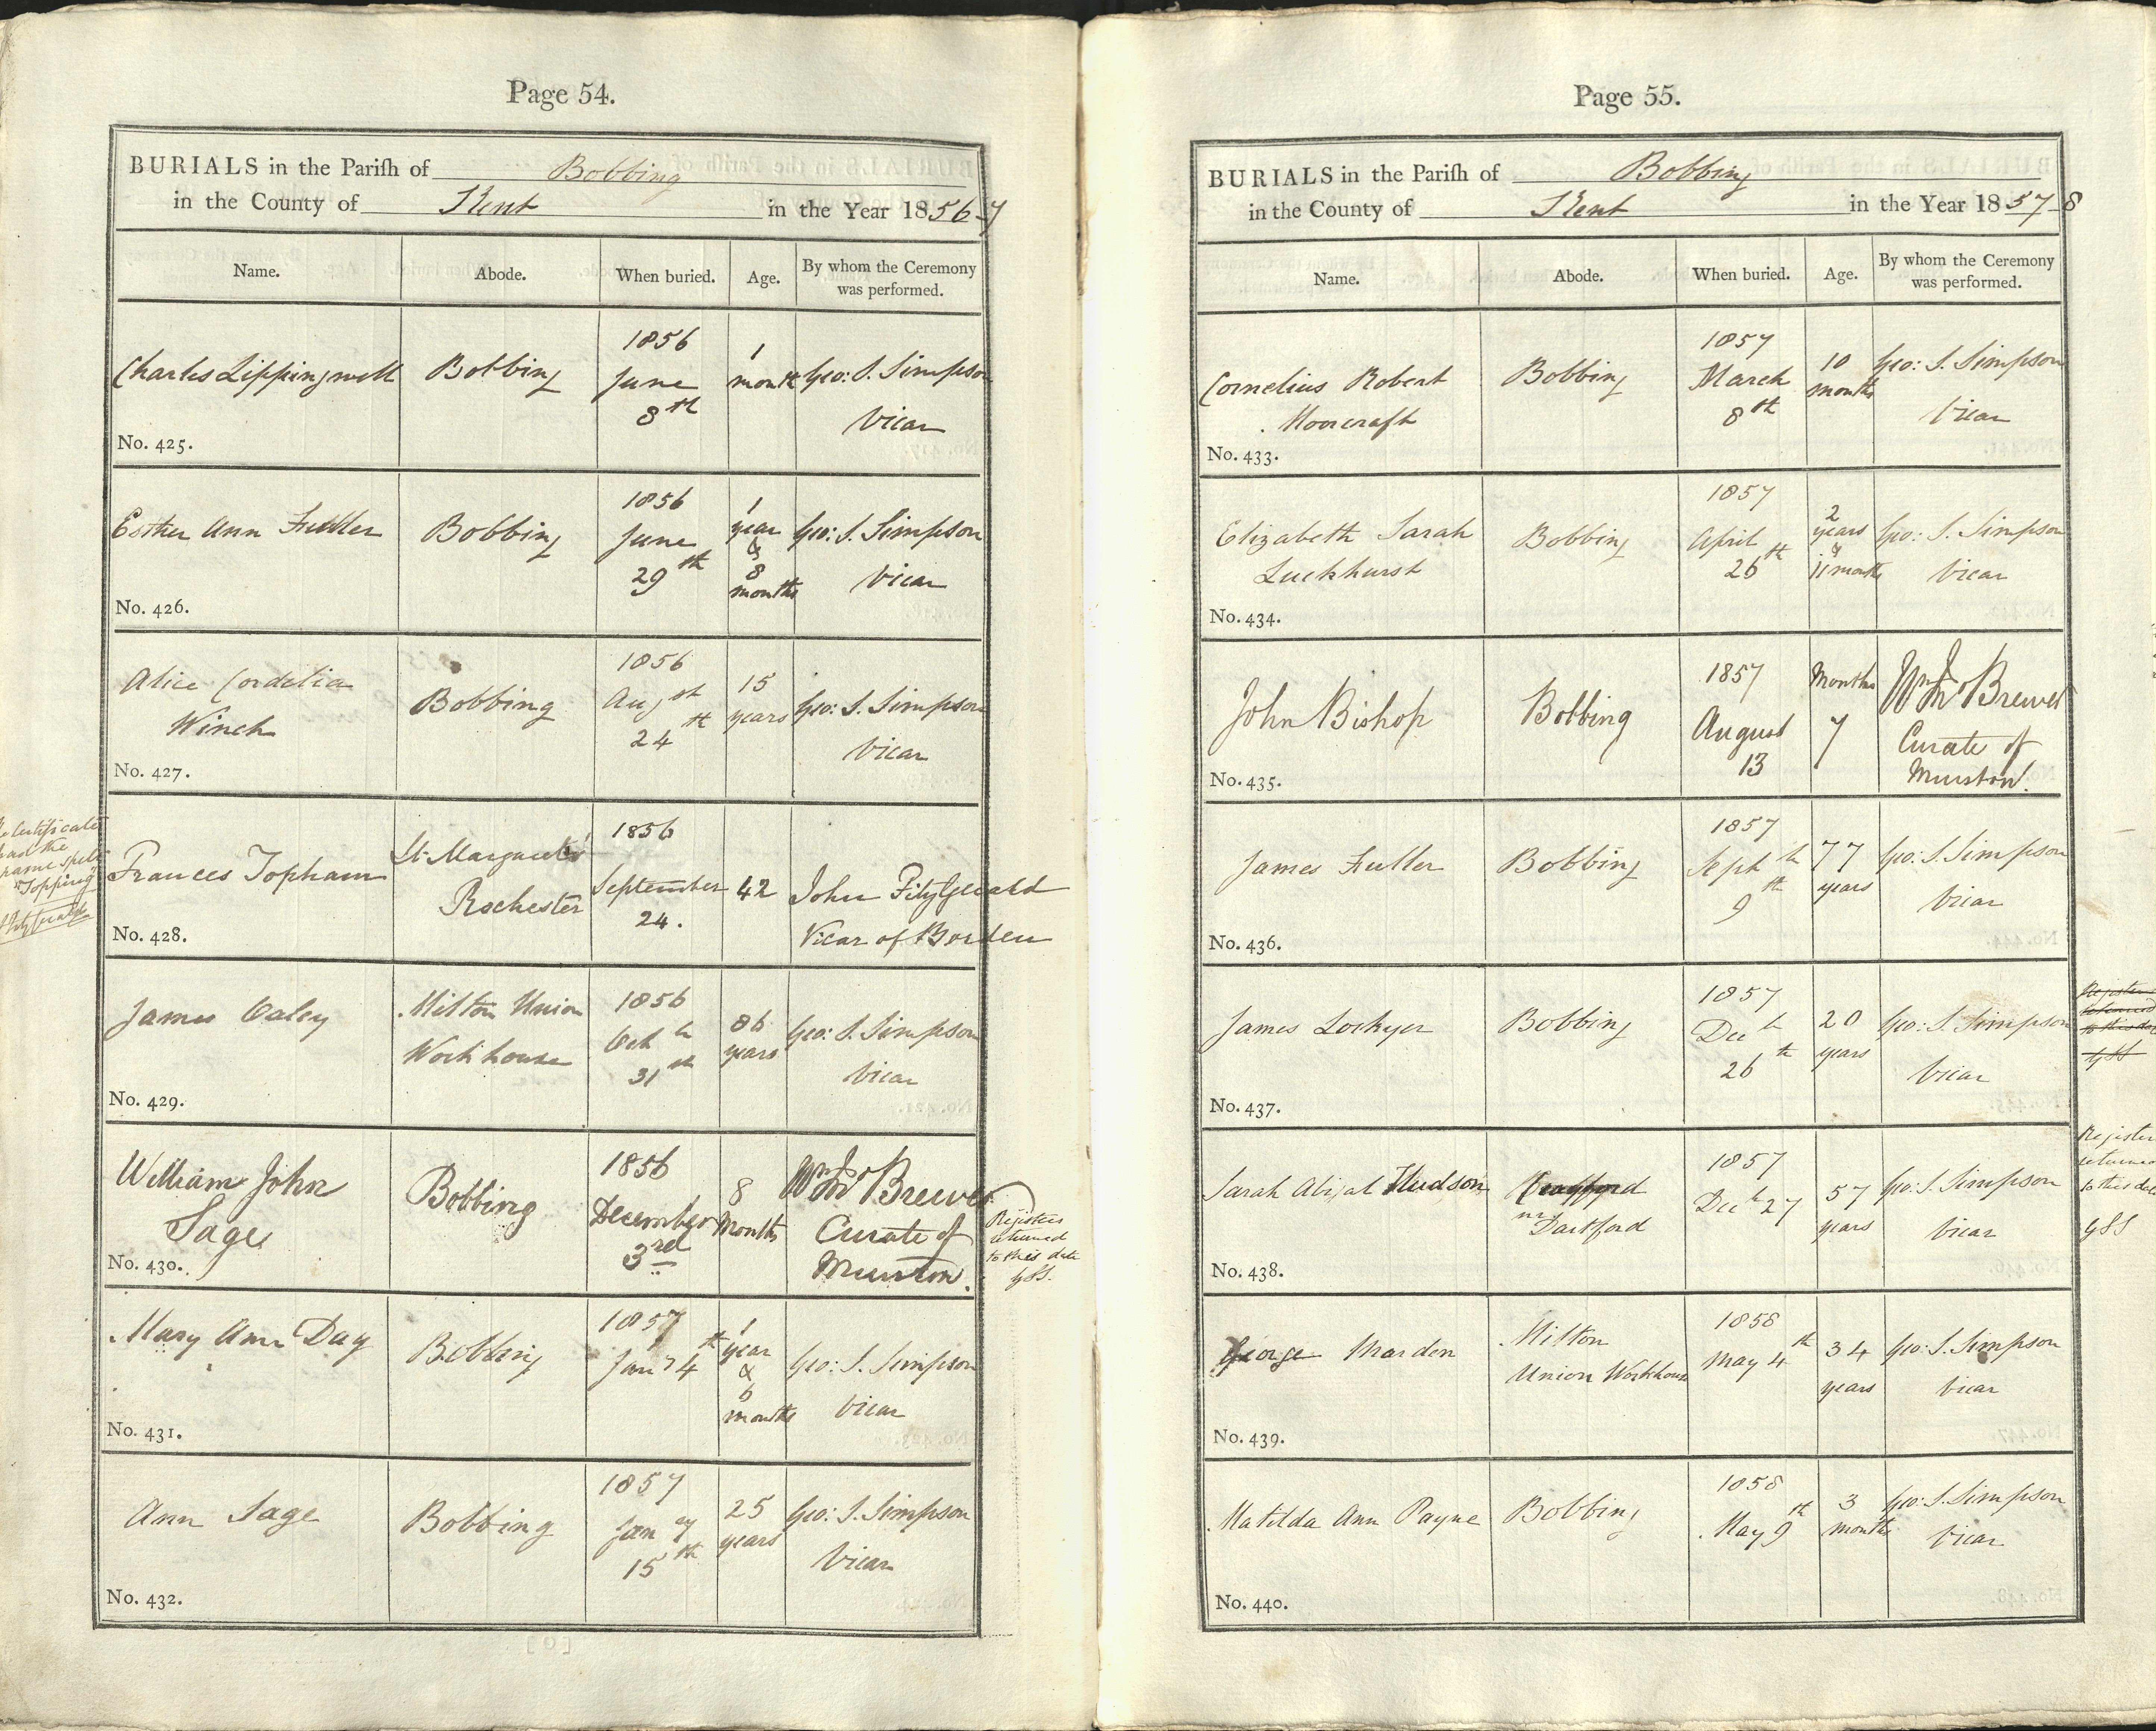 Page 54.
BURIALS in the Parish of Bobbing
in the County of Kent in the Year 1856-7
Name. Abode. When buried. Age. By whom the Ceremony
was performed.
Charles Lippingwell
Bobbing
1856
June
8th
1
month
Geo: S. Simpson
Vicar
No. 425.
Esther Ann Fuller
Bobbing
1856
June
29th
1
year
&
8
months
Geo: S. Simpson
Vicar
No. 426.
Alice Cordelia
Winch
Bobbing
1856
Augst
24th
15
years
Geo: S. Simpson
Vicar
No. 427.
Certificate
had the
name spelt
"Topping"
Frances Topham
St. Margaret's
Rochester
1856
September
24.
42
John FitzGerald
Vicar of Borden
No. 428.
James Oaley
Milton Union
Workhouse
1856
Octr
31st
86
years
Geo: S. Simpson
Vicar
No. 429.
William John
Sage
Bobbing
1856
December
3rd
8
Months
Wm Jno Brewer
Curate of
Murston.
Registers
returned
to this date
GSS.
No. 430.
Mary Ann Day
Bobbing
1857
Jany 4th
1
year
&
6
months
Geo: S. Simpson
Vicar
No. 431.
Ann Sage
Bobbing
1857
Jany
15th
25
years
Geo: S. Simpson
Vicar
No. 432.
Page 55.
BURIALS in the Parish of Bobbing
in the County of Kent in the Year 1857-8
Name. Abode. When buried. Age. By whom the Ceremony
was performed.
Cornelius Robert
Moorcraft
Bobbing
1857
March
8th
10
months
Geo: S. Simpson
Vicar
No. 433.
Elizabeth Sarah
Luckhurst
Bobbing
1857
April
26th
2
years
&
11 months
Geo: S. Simpson
Vicar
No. 434.
John Bishop
Bobbing
1857
August
13
Months
7
Wm Jno Brewer
Curate of
Murston.
No. 435.
James Fuller
Bobbing
1857
Septr
9th
77
years
Geo: S. Simpson
Vicar
No. 436.
James Lockyer
Bobbing
1857
Decr
26th
20
years
Geo: S. Simpson
Vicar
Register
returned
to this date
GSS
No. 437.
Sarah Abigal Hudson
nr
Dartford
1857
Decr 27
57
years
Geo: S. Simpson
Vicar
Register
returned
to this date
GSS
No. 438.
George Marden
Milton
Union Workhouse
1858
May 4th
34
years
Geo: S. Simpson
Vicar
No. 439.
Matilda Ann Payne
Bobbing
1858
May 9th
3
months
Geo: S. Simpson
Vicar
No. 440.